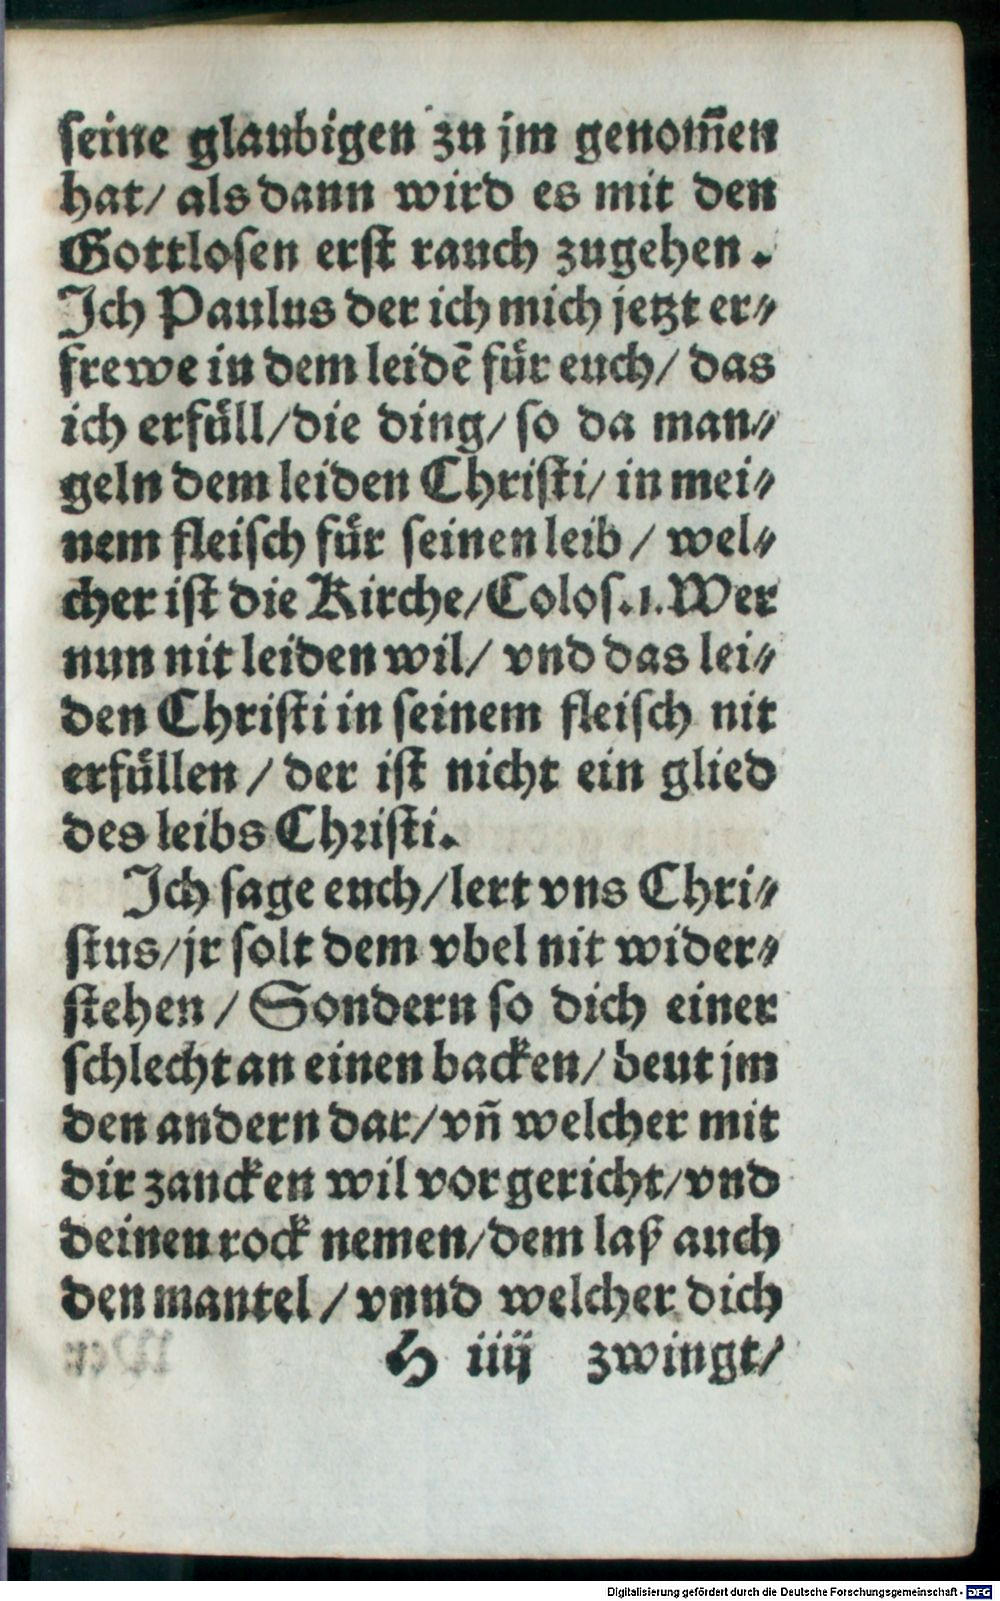 seine glaubigen zu jm genom̃en
hat/ als dann wird es mit den
Gottlosen erst rauch zugehen.
Ich Paulus der ich mich jetzt er⸗
frewe in dem leidē für euch/ das
ich erfüll/die ding/ so da man⸗
geln dem leiden Christi/ in mei⸗
nem fleisch für seinen leib / wel⸗
cher ist die Kirche/Colos.1.Wer
nun nit leiden wil/ vnd das lei⸗
den Christi in seinem fleisch nit
erfüllen / der ist nicht ein glied
des leibs Christi.
Ich sage euch/lert vns Chri⸗
stus/jr solt dem vbel nit wider⸗
stehen / Sondern so dich einer
schlecht an einen backen/ beut jm
den andern dar/vñ welcher mit
dir zancken wil vor gericht/vnd
deinen rock nemen/dem laß auch
den mantel / vnnd welcher dich
H iiij zwingt/
Digitalisierung gefördert durch die Deutsche Forschungsgemeinschaft - DFG